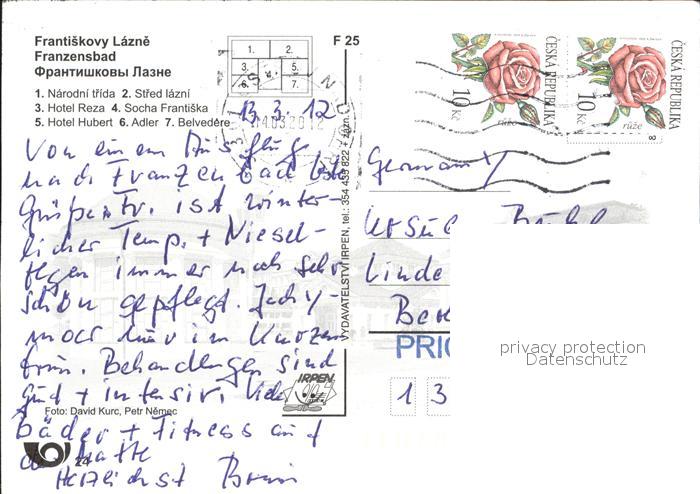 Františkovy Lázně
Franzensbad
Франтишковы Лазне
1. Národní třída 2. Střed lázní
3. Hotel Reza 4. Socha Františka
5. Hotel Hubert 6. Adler 7. Belvedére
1. 2.
3. 4. 5.
6. 7.
F 25
13.3.12
Von einem Ausflug
nach Franzensbad liebe
Grüße. Fr. ist winter-
licher Temp. + Niesel-
regen immer noch sehr
schön gepflegt. Jachy-
mov nur im Kurzen
trum. Behandlungen sind
gut + intensiv. Viele
Bäder + Fitness auf
der Matte
Herzlichst
Foto: David Kurc, Petr Němec
24
VYDAVATELSTVÍ IRPEN, tel.: 354 435 822 + zázn.
IRPEN
ČESKÁ REPUBLIKA
10 Kč
růže
ČESKÁ REPUBLIKA
10 Kč
růže
Germany
Linde
PRIO
1 3
privacy protection
Datenschutz